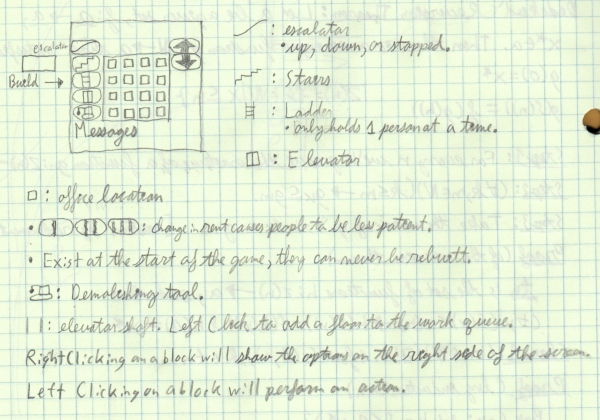 escalator
Build →
Messages
: escalator
• up, down, or stopped.
: Stairs
: Ladder
• only holds 1 person at a time.
: Elevator
□ : office location
• : change in rent causes people to be less patient.
• Exist at the start of the game, they can never be rebuilt.
• : Demolishing tool.
| | : elevator shaft. Left Click to add a floor to the work queue.
Right Clicking on a block will show the options on the right side of the screen.
Left Clicking on a block will perform an action.